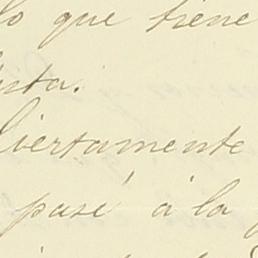 lo que tiene
ista.
Ciertamente
pasé á la